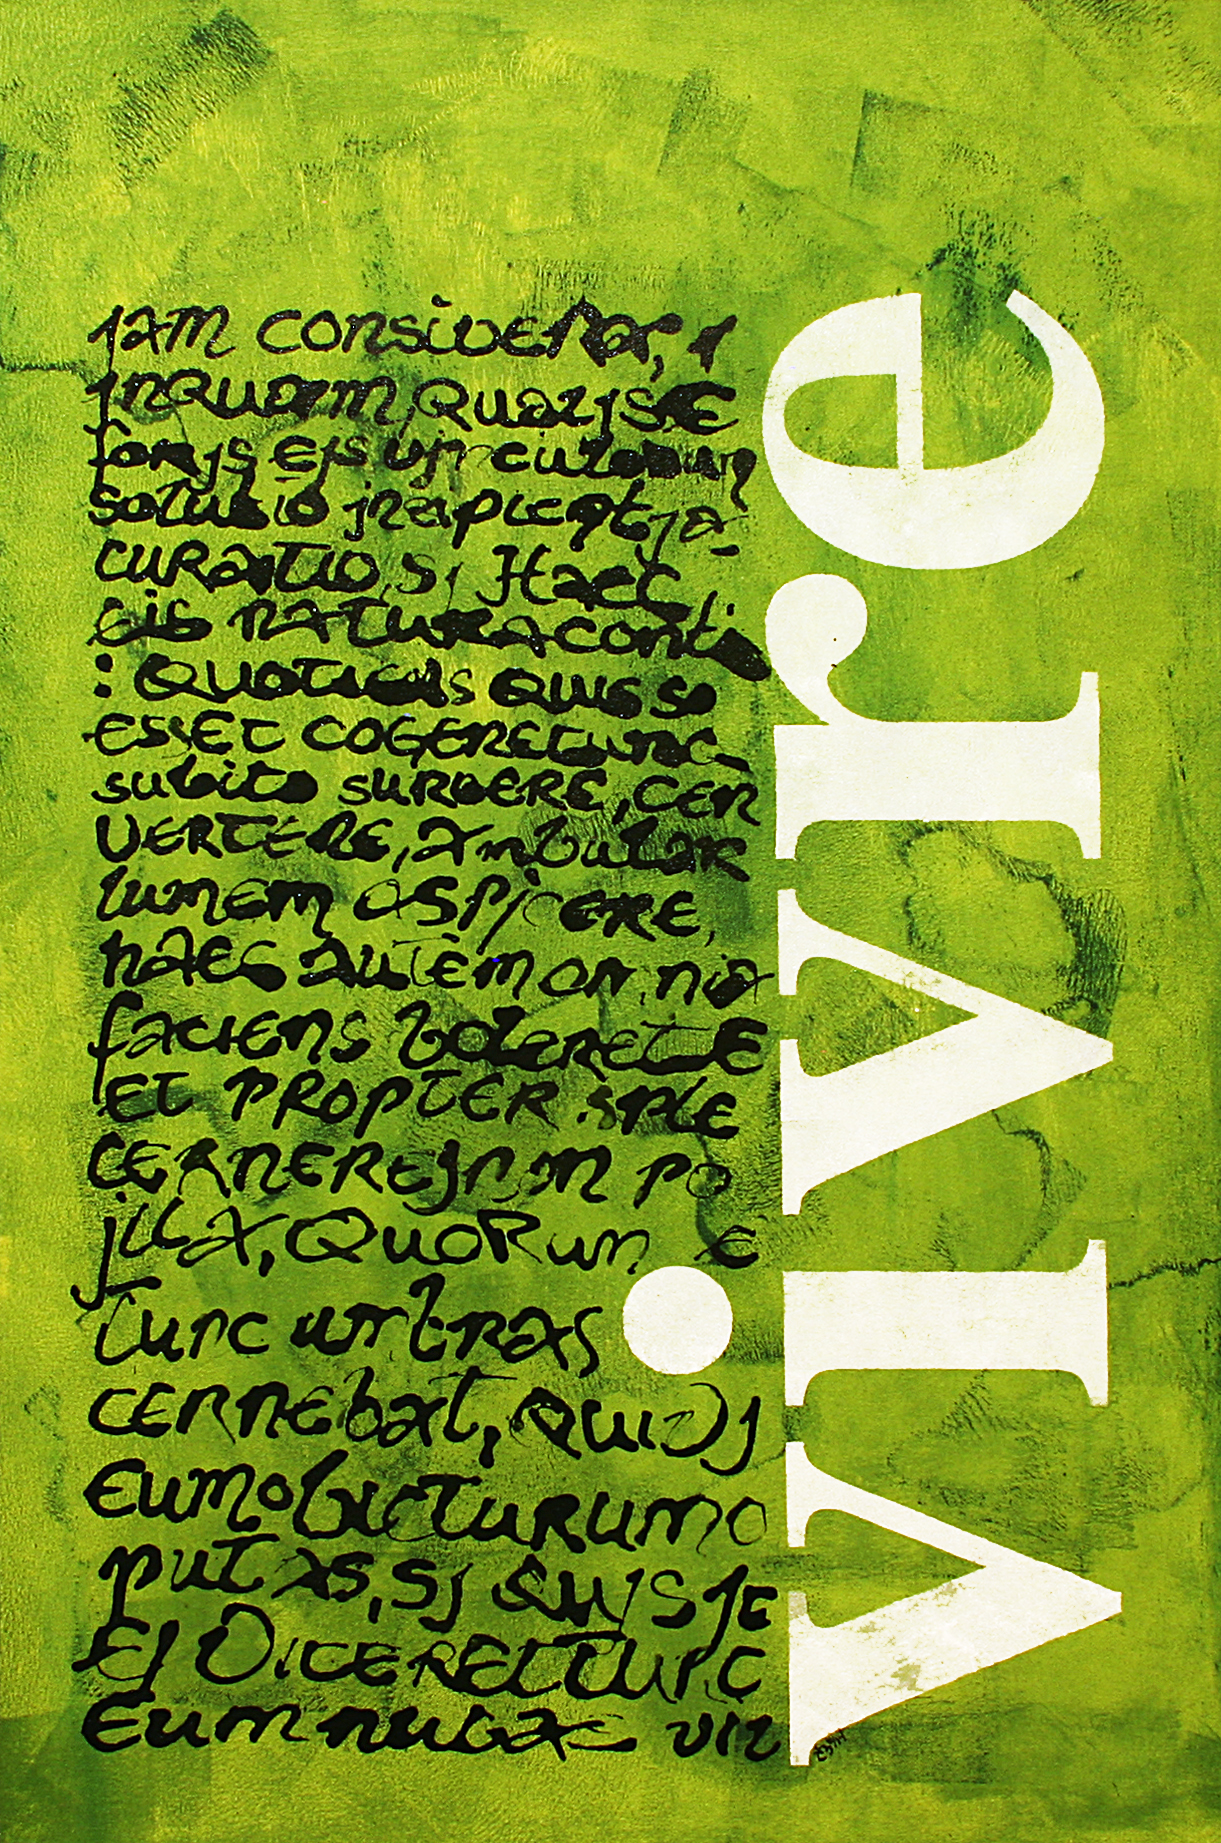 jam considera,
jnquam, qualjs e
forjs ejs vjnculorum
solutio
curatio, sj Haec
eis natura contj
: Quoticus quis so
esset cogeretunc
subito surgere, cer
vertere, ambular
lumem aspjcere,
haec autem omnia
faciens doleret e
et propter sple
cernere jnon po
jlla, quorum e
tunc umbras
cernebat, quid j
eum objecturum o
putas, sj quis je
ej diceret tunc
eum nugas viz
vivre